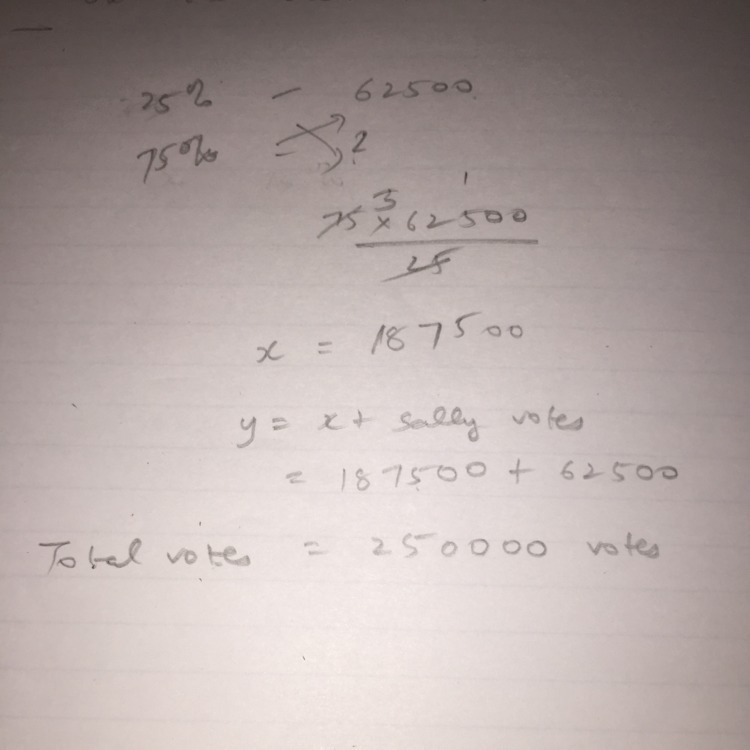 25% - 62500
75% = ?
3 1
75 × 62500
25
x = 187500
y = x + sally votes
= 187500 + 62500
Total votes = 250000 votes